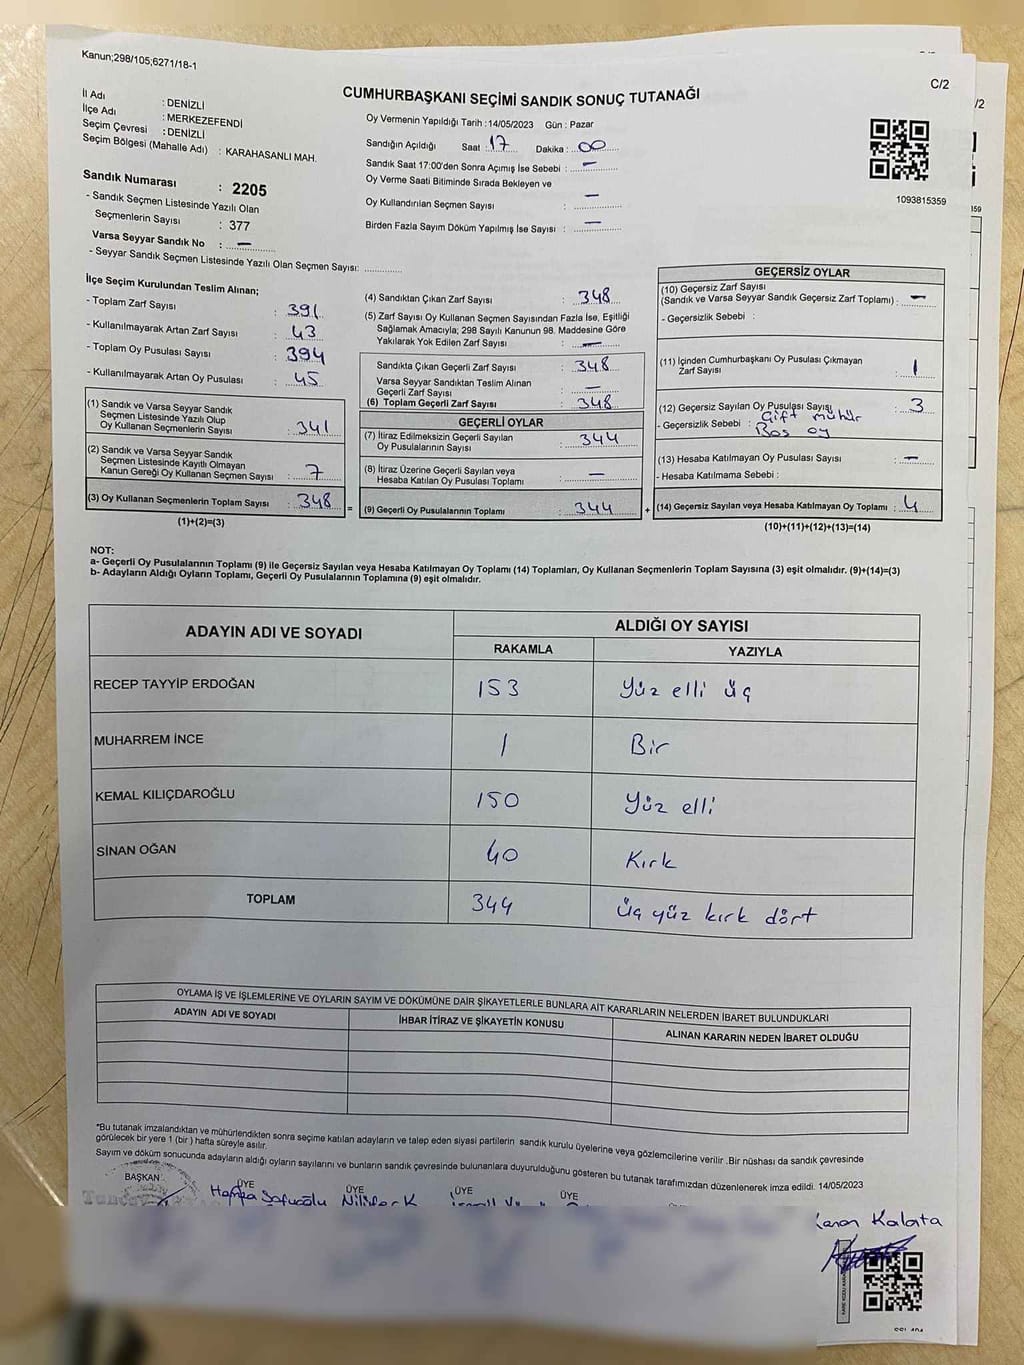 Kanun;298/105;6271/18-1
C/2
CUMHURBAŞKANI SEÇİMİ SANDIK SONUÇ TUTANAĞI
İl Adı : DENİZLİ
İlçe Adı : MERKEZEFENDİ
Seçim Çevresi : DENİZLİ
Seçim Bölgesi (Mahalle Adı) : KARAHASANLI MAH.
Sandık Numarası : 2205
- Sandık Seçmen Listesinde Yazılı Olan
Seçmenlerin Sayısı : 377
Varsa Seyyar Sandık No : –
- Seyyar Sandık Seçmen Listesinde Yazılı Olan Seçmen Sayısı:
Oy Vermenin Yapıldığı Tarih :14/05/2023 Gün : Pazar
Sandığın Açıldığı Saat : 17 Dakika : 00
Sandık Saat 17:00'den Sonra Açımış İse Sebebi : –
Oy Verme Saati Bitiminde Sırada Bekleyen ve
Oy Kullandırılan Seçmen Sayısı : –
Birden Fazla Sayım Döküm Yapılmış İse Sayısı : –
1093815359
/2
İlçe Seçim Kurulundan Teslim Alınan;
- Toplam Zarf Sayısı : 391
- Kullanılmayarak Artan Zarf Sayısı : 43
- Toplam Oy Pusulası Sayısı : 394
- Kullanılmayarak Artan Oy Pusulası : 45
(1) Sandık ve Varsa Seyyar Sandık
Seçmen Listesinde Yazılı Olup
Oy Kullanan Seçmenlerin Sayısı : 341
(2) Sandık ve Varsa Seyyar Sandık
Seçmen Listesinde Kayıtlı Olmayan
Kanun Gereği Oy Kullanan Seçmen Sayısı : 7
(3) Oy Kullanan Seçmenlerin Toplam Sayısı : 348
(1)+(2)=(3)
(4) Sandıktan Çıkan Zarf Sayısı : 348
(5) Zarf Sayısı Oy Kullanan Seçmen Sayısından Fazla İse, Eşitliği
Sağlamak Amacıyla; 298 Sayılı Kanunun 98. Maddesine Göre
Yakılarak Yok Edilen Zarf Sayısı : –
Sandıkta Çıkan Geçerli Zarf Sayısı : 348
Varsa Seyyar Sandıktan Teslim Alınan
Geçerli Zarf Sayısı : –
(6) Toplam Geçerli Zarf Sayısı : 348
GEÇERLİ OYLAR
(7) İtiraz Edilmeksizin Geçerli Sayılan
Oy Pusulalarının Sayısı : 344
(8) İtiraz Üzerine Geçerli Sayılan veya
Hesaba Katılan Oy Pusulası Toplamı : –
= (9) Geçerli Oy Pusulalarının Toplamı : 344
GEÇERSİZ OYLAR
(10) Geçersiz Zarf Sayısı
(Sandık ve Varsa Seyyar Sandık Geçersiz Zarf Toplamı) : –
- Geçersizlik Sebebi :
(11) İçinden Cumhurbaşkanı Oy Pusulası Çıkmayan
Zarf Sayısı : 1
(12) Geçersiz Sayılan Oy Pusulası Sayısı : 3
- Geçersizlik Sebebi : Çift mühür
Boş oy
(13) Hesaba Katılmayan Oy Pusulası Sayısı : –
- Hesaba Katılmama Sebebi :
+ (14) Geçersiz Sayılan veya Hesaba Katılmayan Oy Toplamı : 4
(10)+(11)+(12)+(13)=(14)
NOT:
a- Geçerli Oy Pusulalarının Toplamı (9) ile Geçersiz Sayılan veya Hesaba Katılmayan Oy Toplamı (14) Toplamları, Oy Kullanan Seçmenlerin Toplam Sayısına (3) eşit olmalıdır. (9)+(14)=(3)
b- Adayların Aldığı Oyların Toplamı, Geçerli Oy Pusulalarının Toplamına (9) eşit olmalıdır.
ADAYIN ADI VE SOYADI
ALDIĞI OY SAYISI
RAKAMLA YAZIYLA
RECEP TAYYİP ERDOĞAN 153 Yüz elli üç
MUHARREM İNCE 1 Bir
KEMAL KILIÇDAROĞLU 150 Yüz elli
SİNAN OĞAN 40 Kırk
TOPLAM 344 üç yüz kırk dört
OYLAMA İŞ VE İŞLEMLERİNE VE OYLARIN SAYIM VE DÖKÜMÜNE DAİR ŞİKAYETLERLE BUNLARA AİT KARARLARIN NELERDEN İBARET BULUNDUKLARI
ADAYIN ADI VE SOYADI İHBAR İTİRAZ VE ŞİKAYETİN KONUSU ALINAN KARARIN NEDEN İBARET OLDUĞU
*Bu tutanak imzalandıktan ve mühürlendikten sonra seçime katılan adayların ve talep eden siyasi partilerin sandık kurulu üyelerine veya gözlemcilerine verilir .Bir nüshası da sandık çevresinde
görülecek bir yere 1 (bir ) hafta süreyle asılır.
Sayım ve döküm sonucunda adayların aldığı oyların sayılarını ve bunların sandık çevresinde bulunanlara duyurulduğunu gösteren bu tutanak tarafımızdan düzenlenerek imza edildi. 14/05/2023
BAŞKAN ÜYE ÜYE ÜYE ÜYE
Nilüfer K
Kalata